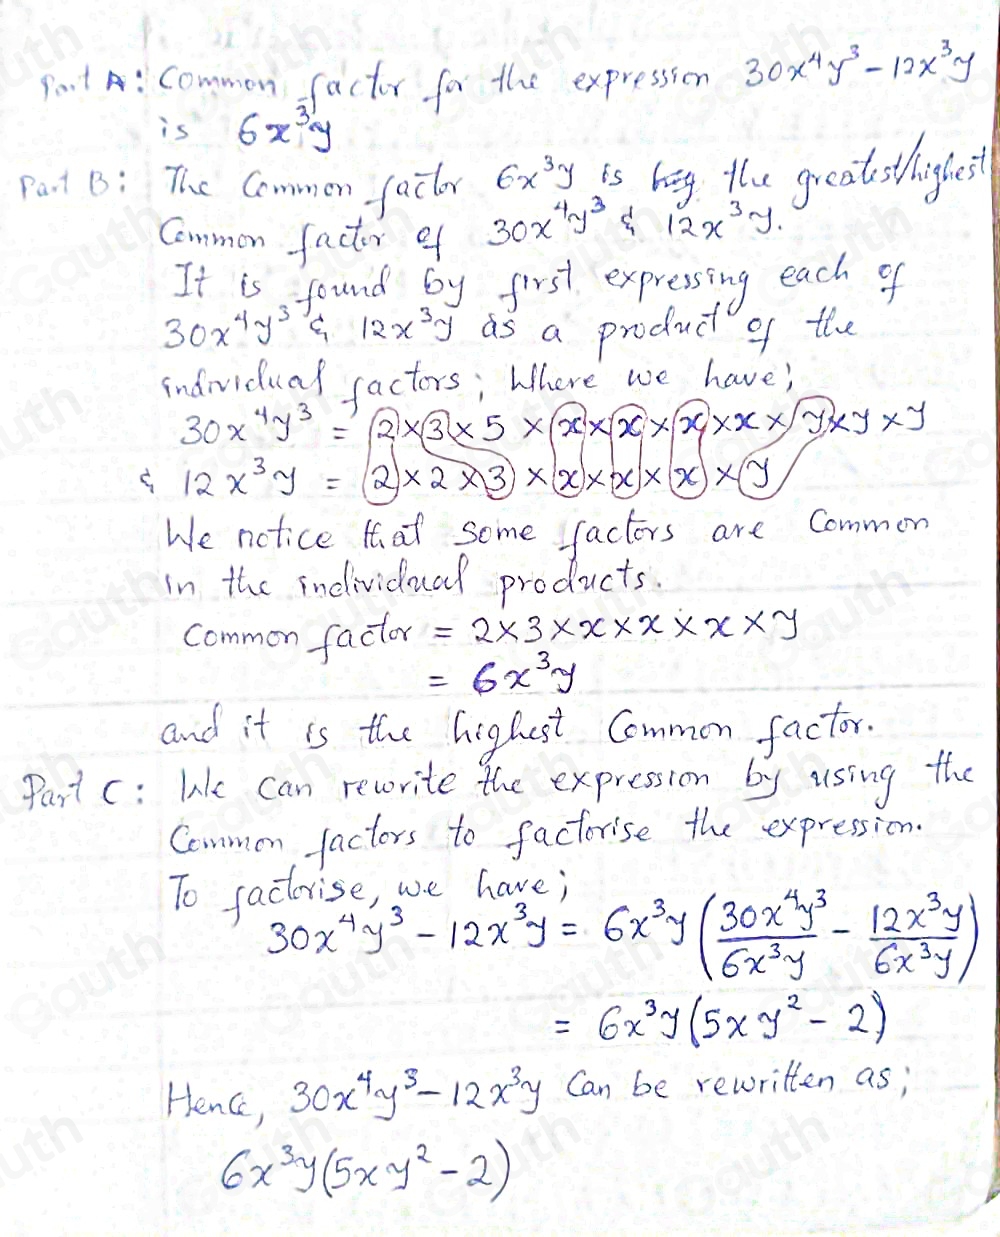 Part A: Common factor for the expression 30x⁴y³ - 12x³y
is 6x³y
Part B: The Common factor 6x³y is the greatest/highest
Common factor of 30x⁴y³ & 12x³y.
It is found by first expressing each of
30x⁴y³ & 12x³y as a product of the
individual factors; Where we have;
30x⁴y³ = 2 × 3 × 5 × x × x × x × x × y × y × y
& 12x³y = 2 × 2 × 3 × x × x × x × y
We notice that some factors are Common
in the individual products.
Common factor = 2 × 3 × x × x × x × y
= 6x³y
and it is the highest Common factor.
Part C: We can rewrite the expression by using the
Common factors to factorise the expression.
To factorise, we have;
30x⁴y³ - 12x³y = 6x³y (30x⁴y³/6x³y - 12x³y/6x³y)
= 6x³y (5xy² - 2)
Hence, 30x⁴y³ - 12x³y Can be rewritten as;
6x³y (5xy² - 2)